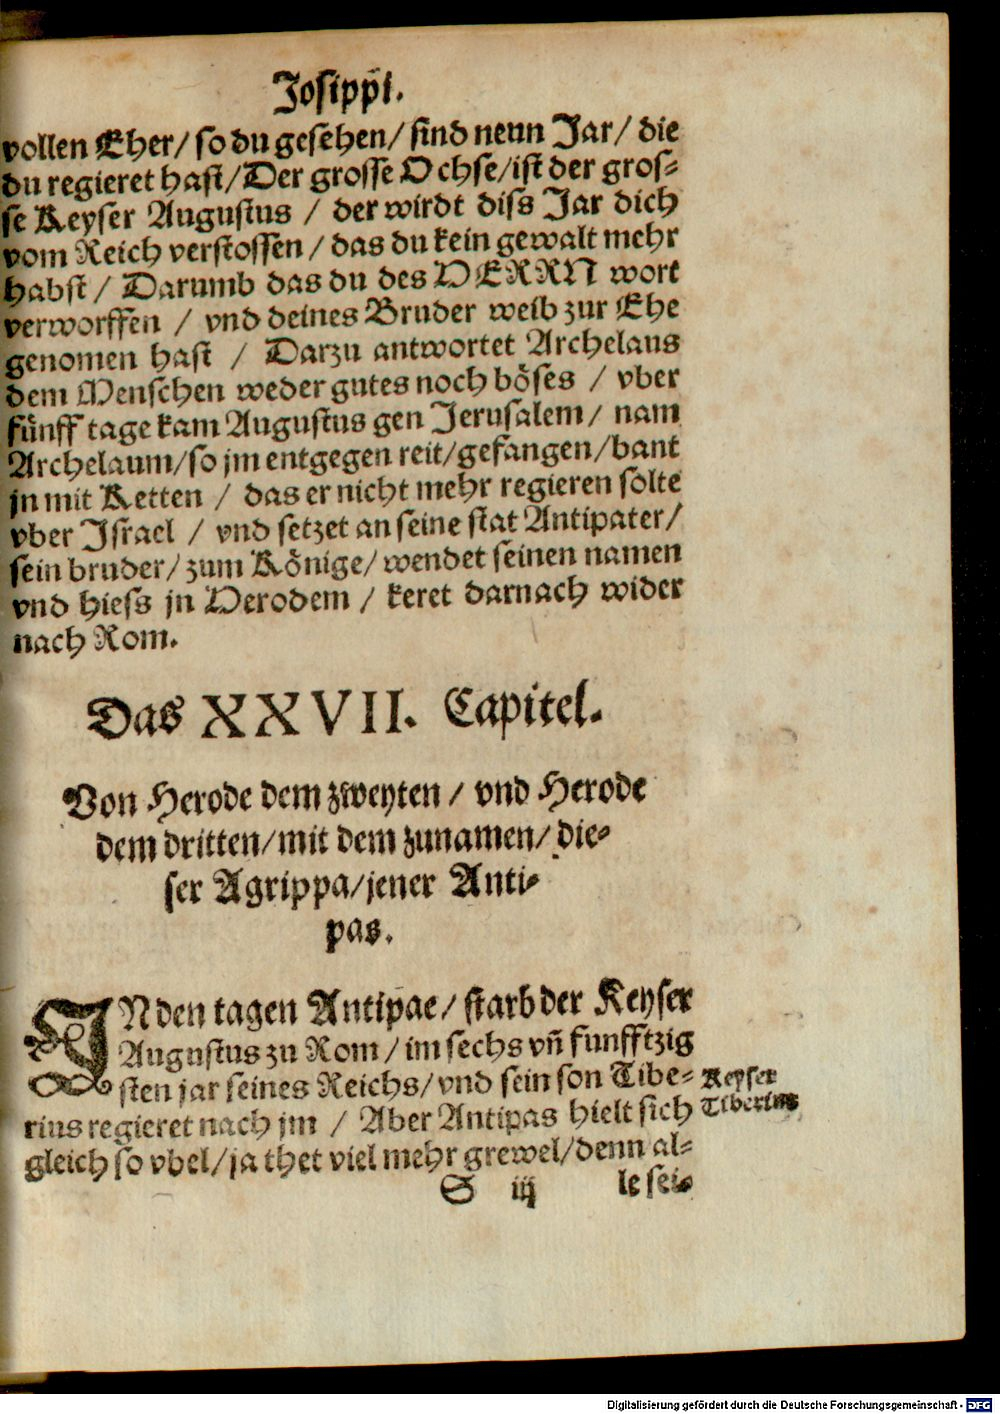 Josippi.
vollen Eher/ so du gesehen/ sind neun Jar/ die
du regieret hast/ Der grosse Ochse/ ist der gros-
se Keyser Augustus / der wirdt diss Jar dich
vom Reich verstossen / das du kein gewalt mehr
habst / Darumb das du des HERRN wort
verworffen / vnd deines Bruder weib zur Ehe
genomen hast / Darzu antwortet Archelaus
dem Menschen weder gutes noch böses / vber
fünff tage kam Augustus gen Jerusalem/ nam
Archelaum/ so jm entgegen reit/ gefangen/ bant
jn mit Ketten / das er nicht mehr regieren solte
vber Israel / vnd setzet an seine stat Antipater/
sein bruder/ zum Könige/ wendet seinen namen
vnd hiess jn Herodem / keret darnach wider
nach Rom.
Das XXVII. Capitel.
Von Herode dem zweyten / vnd Herode
dem dritten/ mit dem zunamen/ die-
ser Agrippa/ jener Anti-
pas.
IN den tagen Antipae/ starb der Keyser
Augustus zu Rom / im sechs vñ funfftzig
sten jar seines Reichs/ vnd sein son Tibe-
rius regieret nach jm / Aber Antipas hielt sich
gleich so vbel/ ja thet viel mehr grewel/ denn al-
Keyser
Tiberius
S iij le sei-
Digitalisierung gefördert durch die Deutsche Forschungsgemeinschaft - DFG